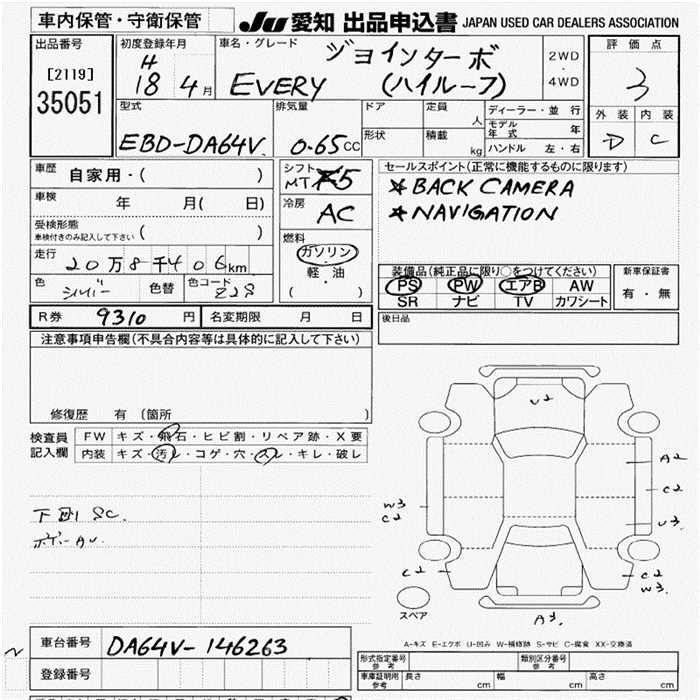 車内保管・守衛保管 JU 愛知 出品申込書 JAPAN USED CAR DEALERS ASSOCIATION
出品番号 初度登録年月 車名・グレード ジョインターボ 2WD 評価点
[2119] H EVERY (ハイルーフ) ・ 3
35051 18 4月 4WD
外装 内装
D C
型式 排気量 ドア 定員 人 ディーラー・並行
EBD-DA64V 0.65CC 形状 積載 kg モデル年式 年
ハンドル 左・右
車歴 自家用・( ) シフト MT F5 セールスポイント(正常に機能するものに限ります)
車検 年 月( 日) 冷房 AC ★BACK CAMERA
受検形態 ★NAVIGATION
車検付きのみ記入して下さい ( ) 燃料
走行 20万8千406km ガソリン 装備品(純正品に限り○をつけてください) 新車保証書
色 シルバー 色替 色コード Z2S 軽・油 PS PW エアB AW 有・無
( ) SR ナビ TV カワシート
R券 9310 円 名変期限 月 日 後日品
注意事項申告欄(不具合内容等は具体的に記入して下さい)
修復歴 有 (箇所 )
検査員 FW キズ・飛石・ヒビ割・リペア跡・X要
記入欄 内装 キズ・汚レ・コゲ・穴・スレ・キレ・破レ
U2
A2
C2
W3
C2
U3
C2
C2
W3
A3
スペア
下回リ SC.
ボデーAU.
A-キズ E-エクボ U-凹み W-補修跡 S-サビ C-腐食 XX-交換済
車台番号 DA64V-146263
登録番号
形式指定番号 参考 類別区分番号 参考
車庫証明用 参考 長さ cm 幅 cm 高さ cm